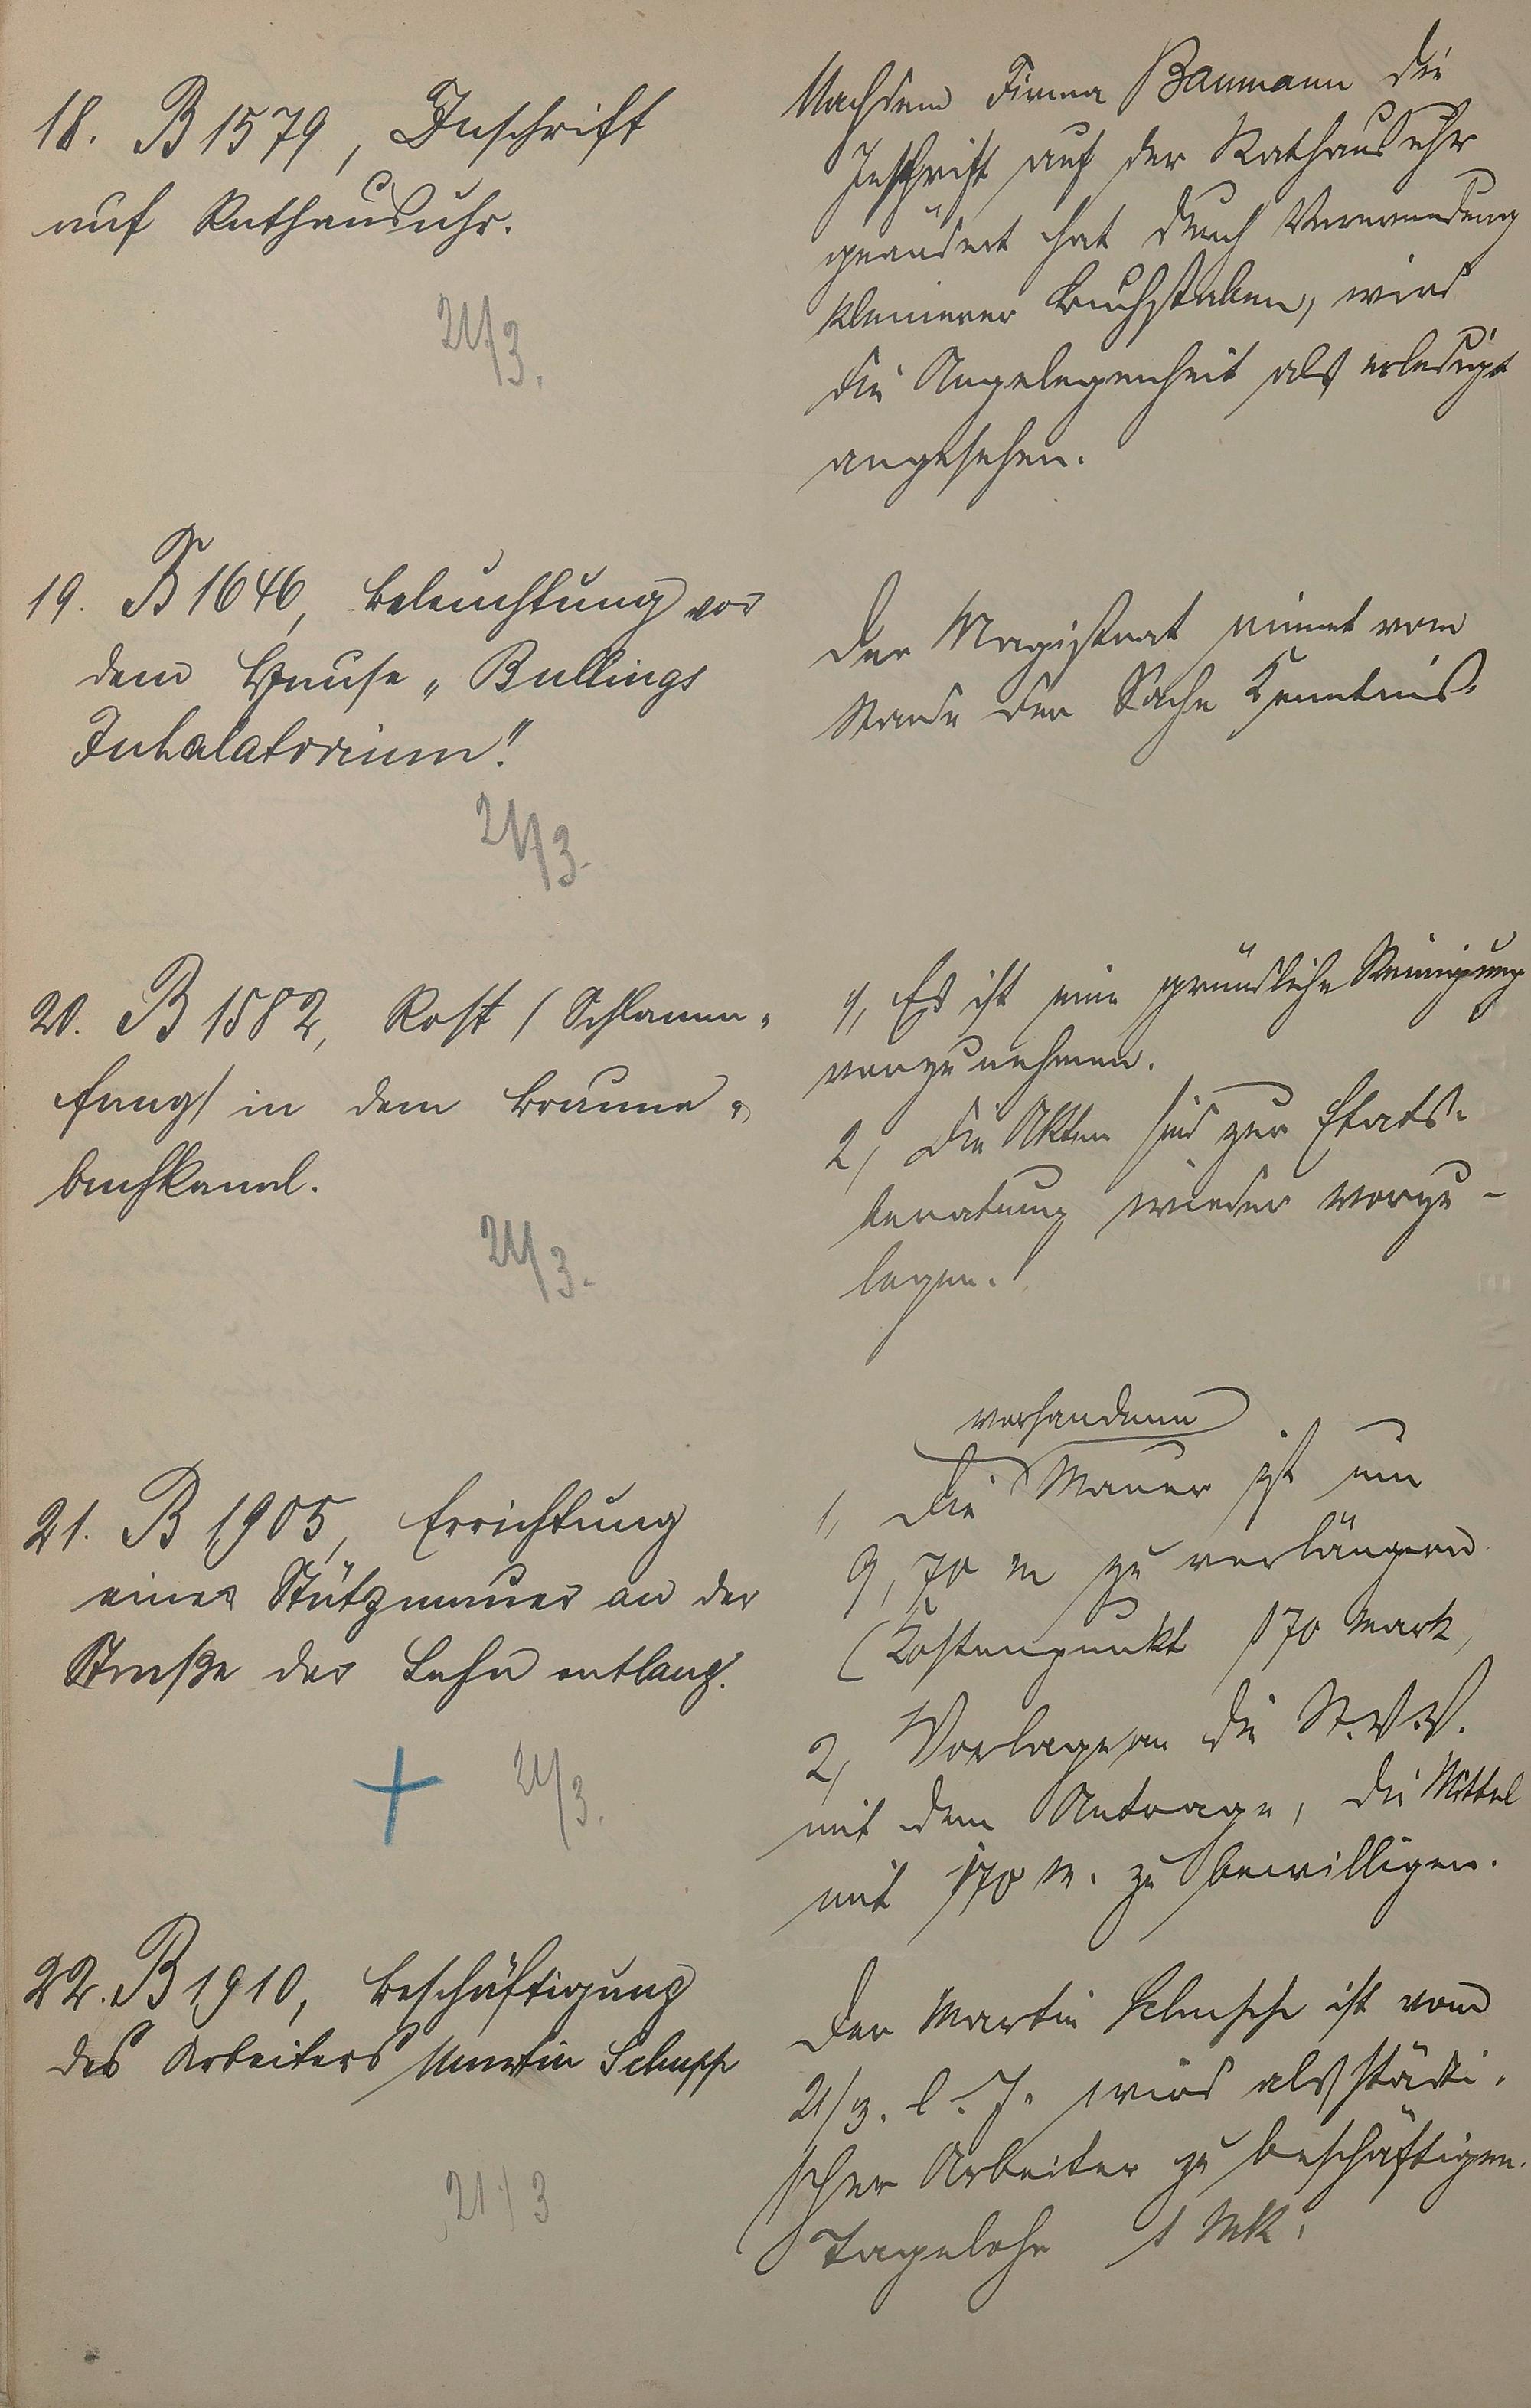 18. B 1579, Inschrift
auf Rathausuhr.
21/3.
Nachdem Firma Baumann die
Inschrift auf der Rathausuhr
geändert hat durch Verwendung
kleinerer Buchstaben, wird
die Angelegenheit als erledigt
angesehen.
19. B 1646, Beleuchtung vor
dem Hause „Bullings
Inhalatorium".
21/3.
Der Magistrat nimmt vom
Stande der Sache Kenntnis.
20. B 1582, Rost (Schlamm-
fang) in dem Braune-
bachkanal.
21/3.
1, Es ist eine gründliche Reinigung
vorzunehmen.
2, Die Akten sind zur Etats-
beratung wieder vorzu-
legen.
21. B 1905, Errichtung
einer Stützmauer an der
Straße der Lahn entlang.
21/3.
vorhandene
1, Die Mauer ist um
9,70 m zu verlängern
(Kostenpunkt 170 Mark,
2, Vorlage an die St.V.V.
mit dem Antrage, die Mittel
mit 170 M. zu bewilligen.
22. B 1910, Beschäftigung
des Arbeiters Martin Schupp
21/3
Der Martin ist vom
21/3. l. J. wird als städti-
scher Arbeiter zu beschäftigen.
Tagelohn 1 Mk.